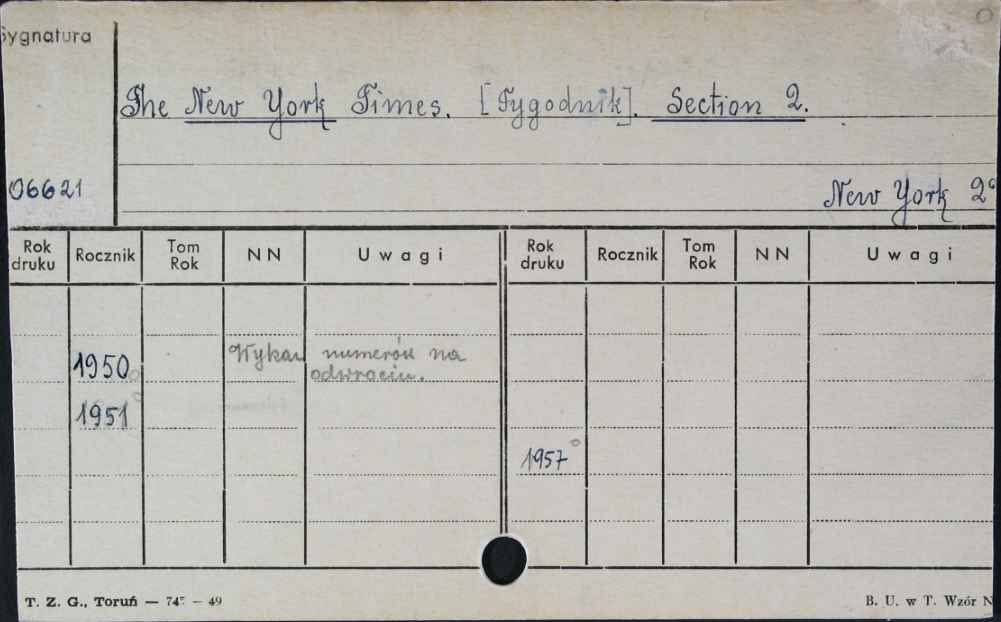 Sygnatura
The New York Times. [Tygodnik]. Section 2.
06621
New York 2°
Rok druku Rocznik Tom Rok NN Uwagi Rok druku Rocznik Tom Rok NN Uwagi
1950 Wykaz numerów na
odwrociu.
1951
1957
T. Z. G., Toruń — 49
B. U. w T. Wzór N